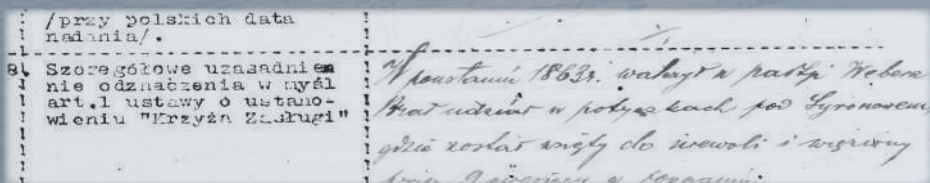 /przy polskich data
nadania/.
8. Szczegółowe uzasadnie
nie odznaczenia w myśl
art.1 ustawy o ustano-
wieniu "Krzyża Zasługi"
W powstaniu 1863r. walczył w partji Webera
Brał udział w potyczkach pod
gdzie został wzięty do niewoli i więziony
przez 9 miesięcy w